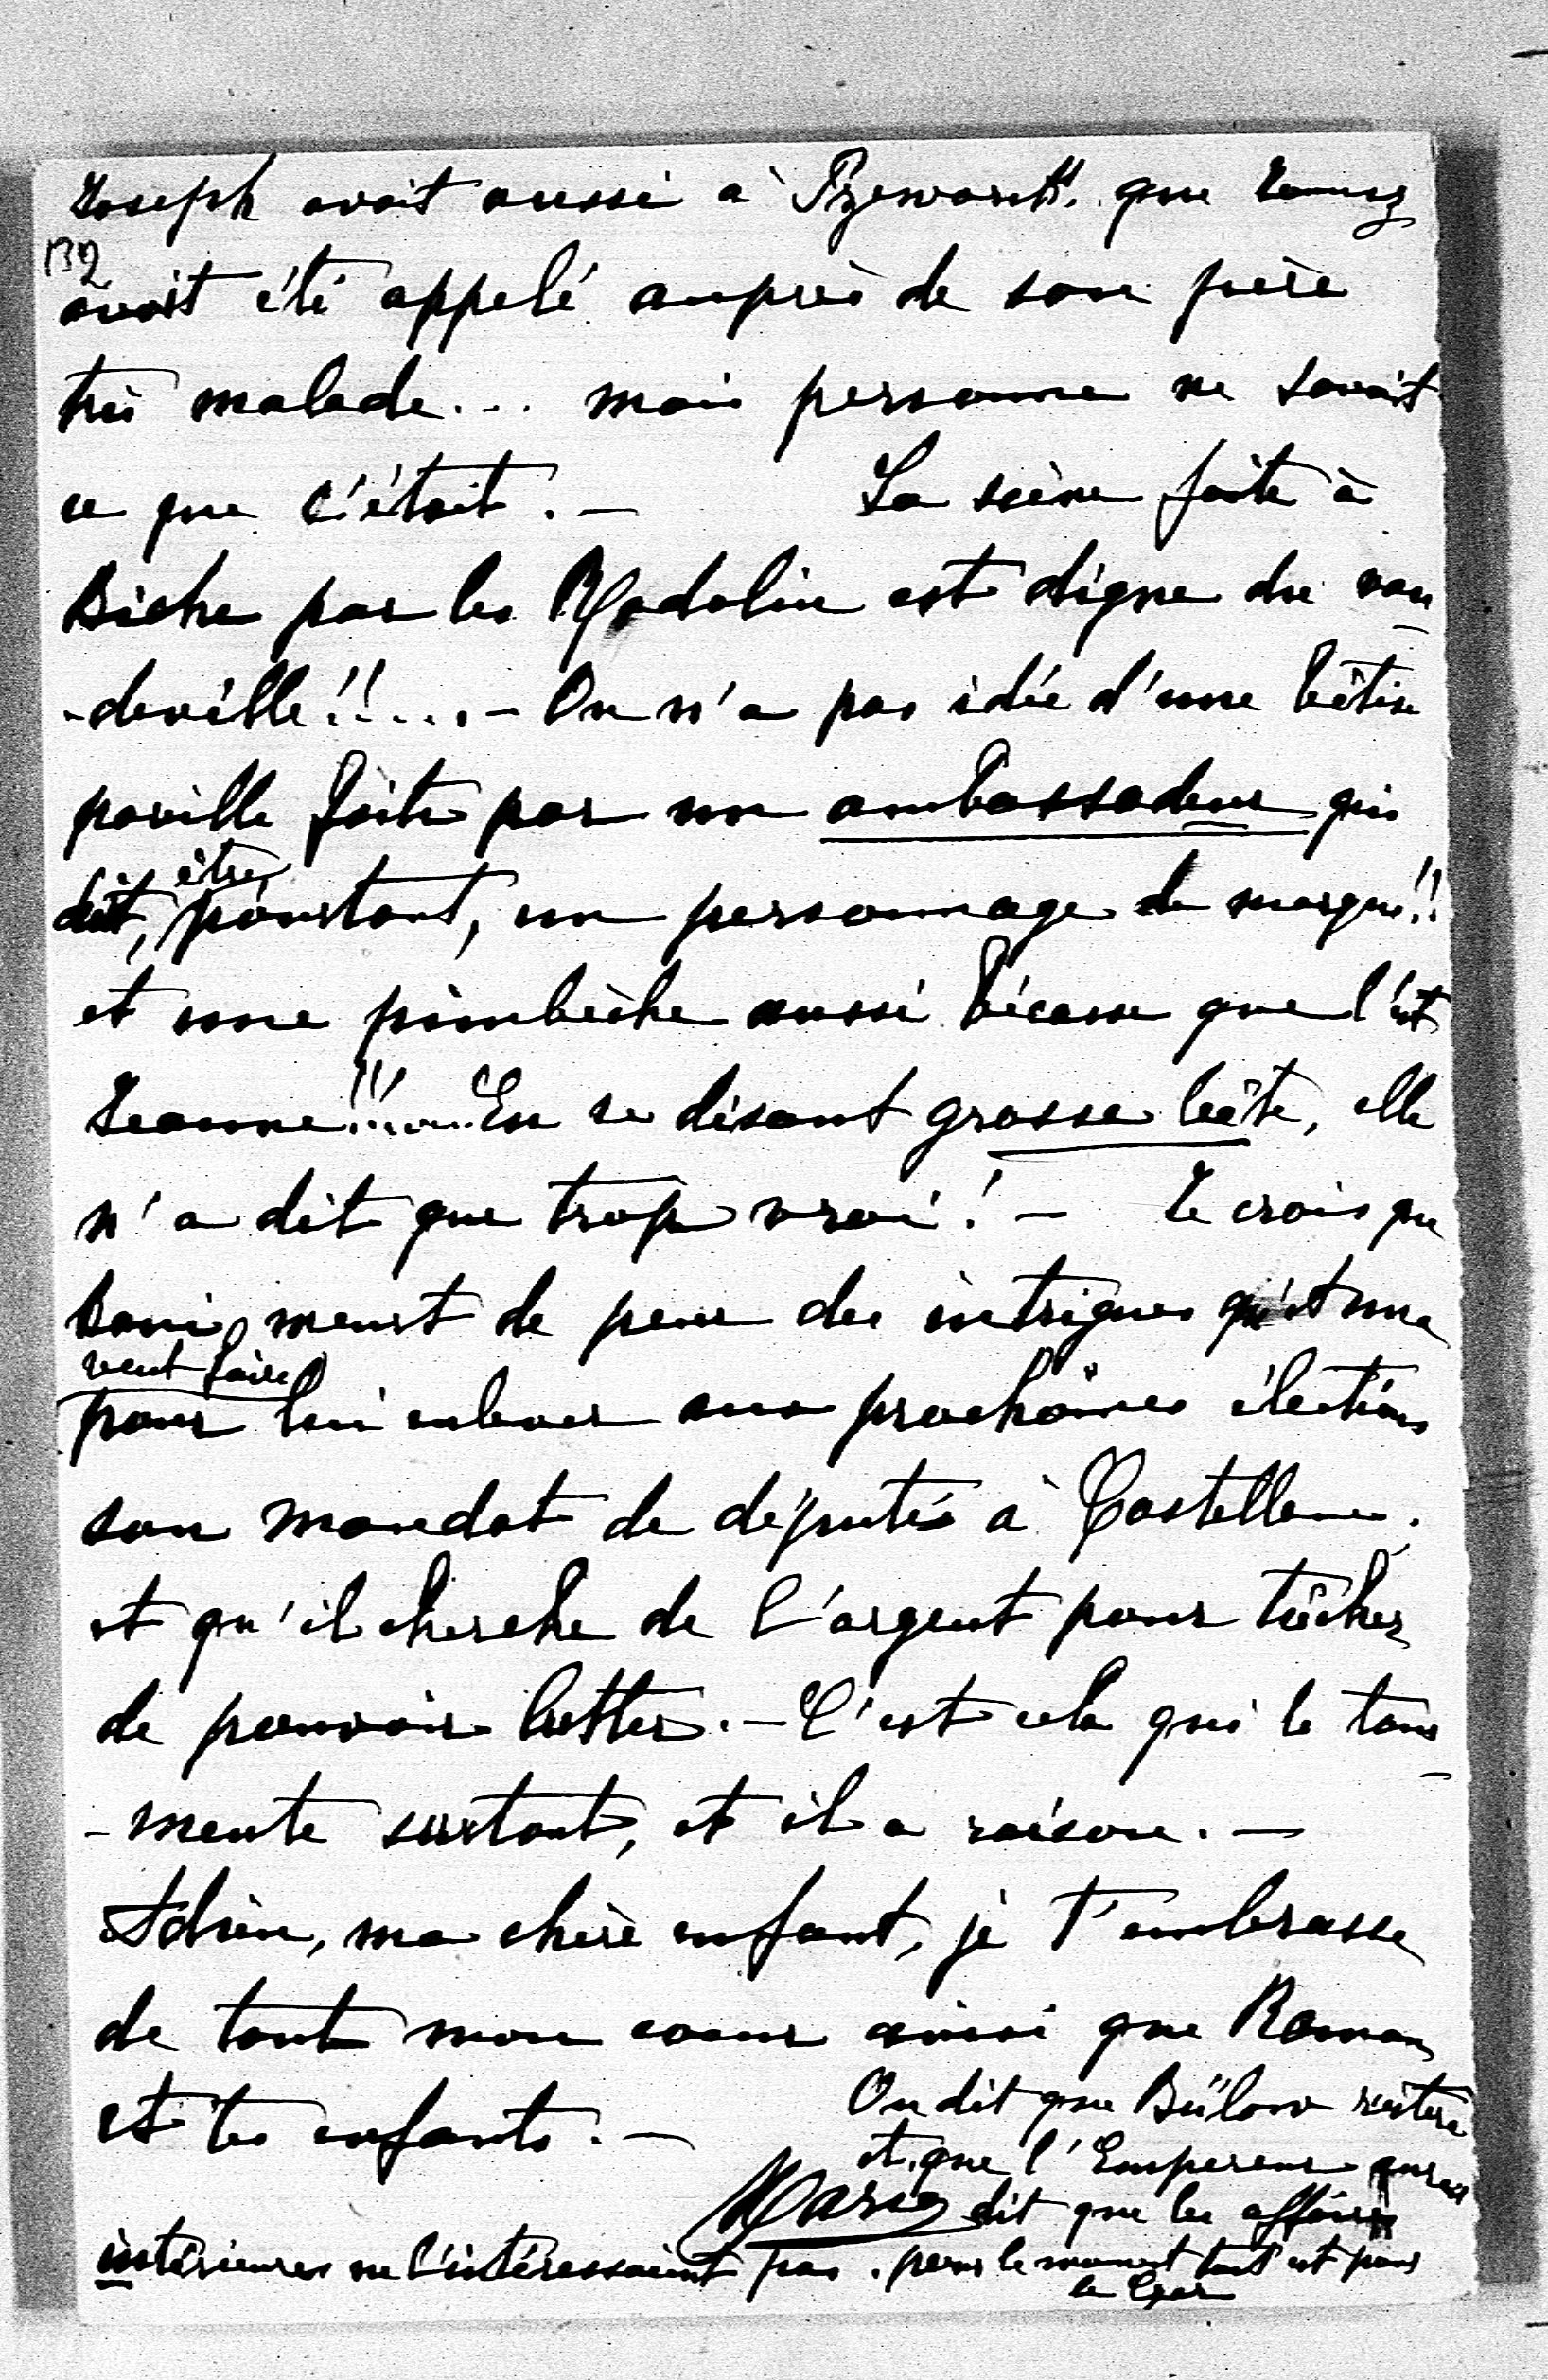 Joseph avait aussi à Przeworsk, que Janusz
132
avait été appelé auprès de son frère
très malade... mais personne ne savait
ce que c'était. — La scène faite à
Biche par les Radolin est digne du vau-
-deville!!.... — On n'a pas idée d'une bêtise
pareille faite par un ambassadeur qui
doit, être pourtant, un personnage de marque!!
et une pimbêche aussi bécasse que l'est
Jeanne!!!.... En se disant grosse bête, elle
n'a dit que trop vrai! — Je crois que
Boni meurt de peur des intrigues qu'
veut faire
pour lui enlever aux prochaines élections
son mandat de député à Castellane;
et qu'il cherche de l'argent pour tâcher
de pouvoir lutter. — C'est cela qui le tour-
-mente surtout, et il a raison. —
Adieu, ma chère enfant, je t'embrasse
de tout mon coeur ainsi que Roman
et tes enfants. —
Marie
On dit que Bülow restera
et que l'Empereur aurait
dit que les affaires
intérieures ne l'intéressaient pas. pour le moment tout est pour
le Czar